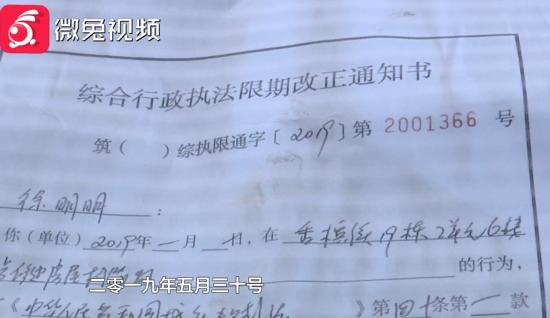 微兔视频
综合行政执法限期改正通知书
筑( )综执限通字〔2019〕第 2001366 号
徐明明:
你(单位)2019年一月一日,在 香槟 19栋2单元6楼
房屋 的行为,
二零一九年五月三十号
《中华人民共和国城乡规划法》第四十条第一款